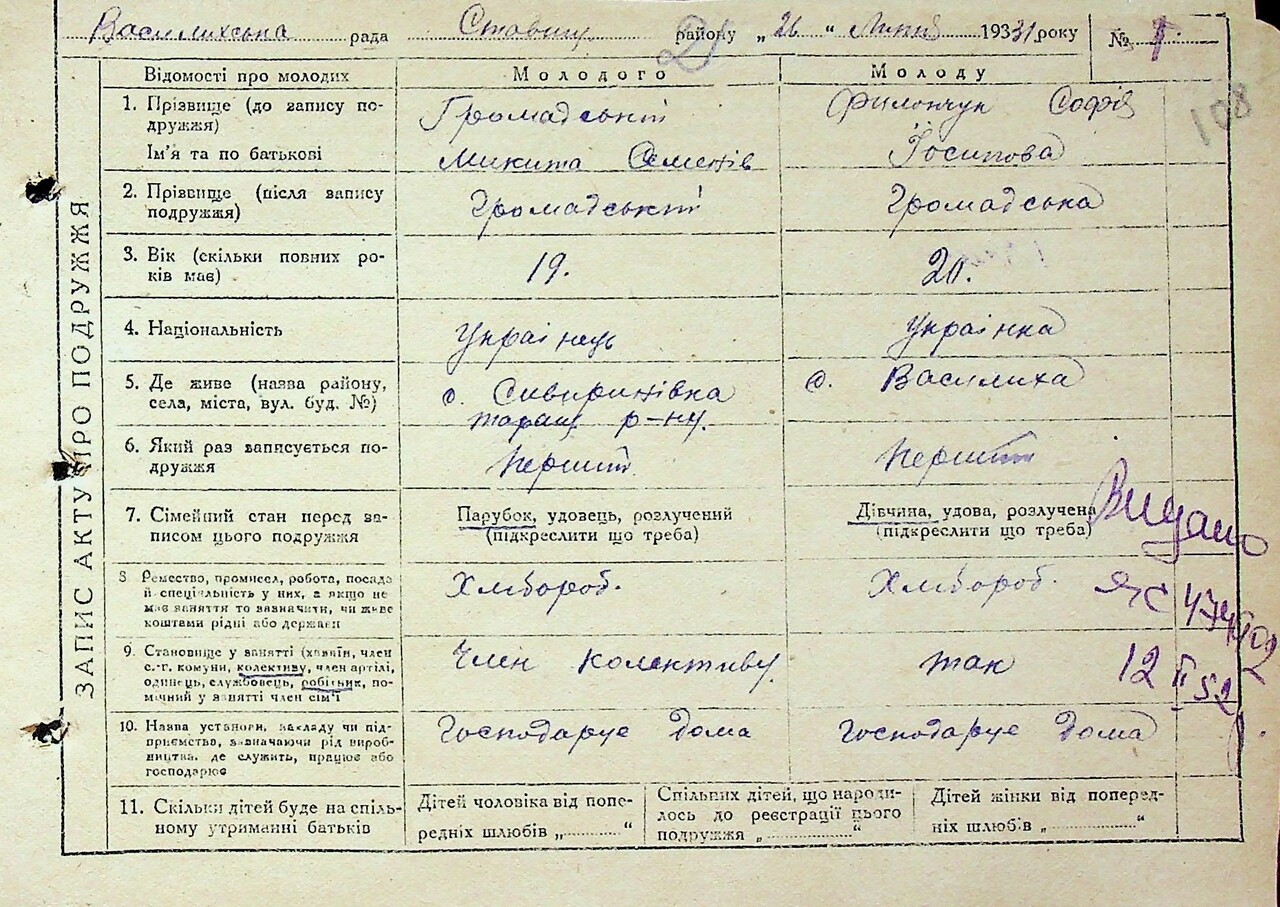 Василихська рада Ставищ. району „ 26 “ 193 31 року №
ЗАПИС АКТУ ПРО ПОДРУЖЖЯ
Відомості про молодих Молодого Молоду
108
1. Прізвище (до запису подружжя) Громадський Филончук Софія
Ім'я та по батькові Микита Семенів Йосипова
2. Прізвище (після запису подружжя) Громадський Громадська
3. Вік (скільки повних років має) 19. 20.
4. Національність Українець Українка
5. Де живе (назва району, села, міста, вул. буд. №) с. Сиваринівка тараш. р-ну. с. Василиха
6. Який раз записується подружжя перший перший
7. Сімейний стан перед записом цього подружжя Парубок, удовець, розлучений (підкреслити що треба) Дівчина, удова, розлучена (підкреслити що треба)
Видано
8 Ремество, промисел, робота, посада й спеціяльність у них, а якщо не має заняття то зазначити, чи живе коштами рідні або держави Хлібороб. Хлібороб.
9. Становище у занятті (хазяїн, член с.-г. комуни, колективу, член артілі, одинець, службовець, робітник, помічний у занятті член сім'ї Член колективу так
12 II 52
10. Назва установи, закладу чи підприємства, зазначаючи рід виробництва, де служить, працює або господарює Господарує дома Господарує дома
11. Скільки дітей буде на спільному утриманні батьків Дітей чоловіка від попередніх шлюбів „............“ Спільних дітей, що народилось до реєстрації цього подружжя „..................“ Дітей жінки від попередніх шлюбів „..................“